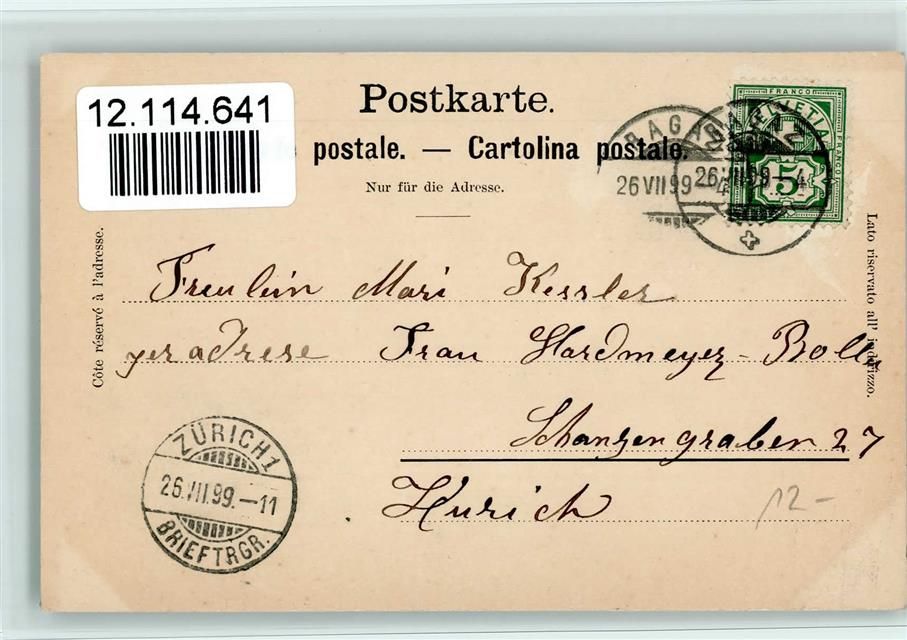 12.114.641
Postkarte.
postale. — Cartolina postale.
Nur für die Adresse.
FRANCO
HELVETIA
FRANCO
5
RAGAZ
26 VII 99 – 4
RAGAZ
26 VII 99 – 4
Côté réservé à l'adresse.
Lato riservato all' indirizzo.
Freulein Mari Kessler
per adrese Frau Hardmeyer-Bolly
Schanzengraben 27
Zurich
ZÜRICH 1
26.VII.99.–11
BRIEFTRGR.
12–